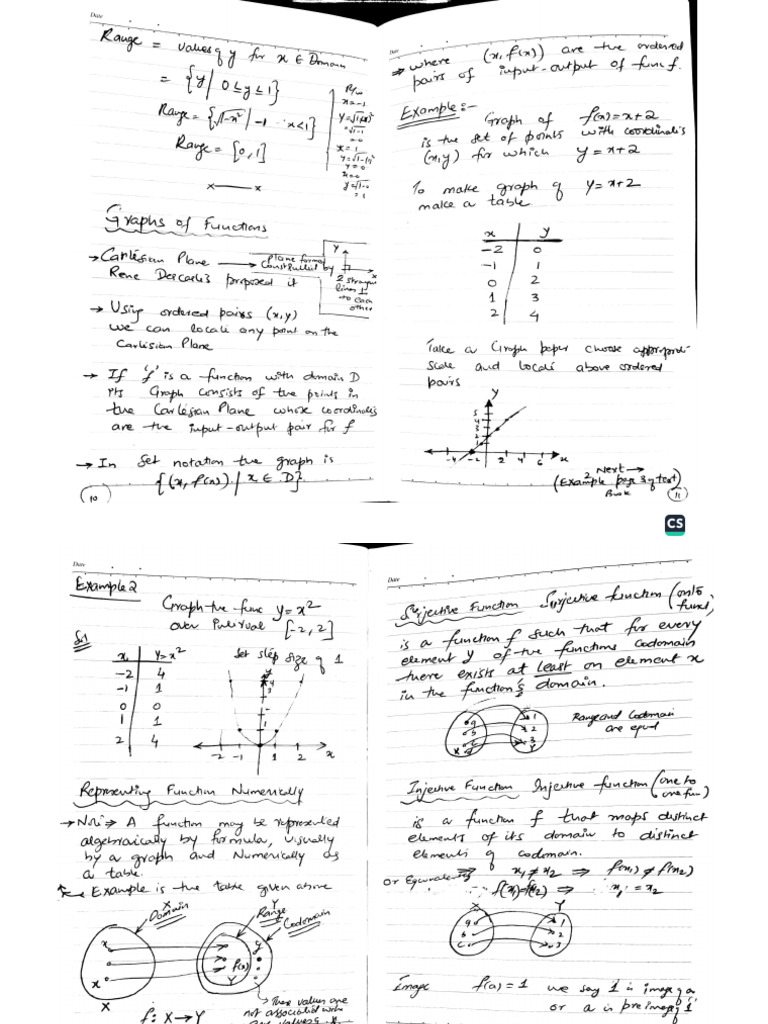 Date
Range = values of y for x ∈ Domain
= {y | 0 ≤ y ≤ 1}
Range = {√1-x² | -1 x<1}
Range = [0, 1]
x = -1
= √1-1
x = 1
y = 0
x = 0
y = √1-0
= 1
x——x
Graphs of Functions
→ Cartesian Plane → Plane formed
constructed by
2 straight
lines ⊥
to each
other
Y
x
Rene Descartis proposed it
→ Using ordered pairs (x,y)
we can locate any point on the
Cartesian Plane
→ If 'f' is a function with domain D
its Graph consists of the points in
the Cartesian Plane whose coordinates
are the input-output pair for f
→ In set notation the graph is
{(x, f(x)) | x ∈ D}
10
Date
⇒ where (x, f(x)) are the ordered
pairs of input-output of func f.
Example:-
Graph of f(x) = x+2
is the set of points with coordinates
(x,y) for which y = x+2
To make graph of y = x+2
make a table
x y
-2 0
-1 1
0 2
1 3
2 4
Take a Graph paper choose appropriate
scale and locate above ordered
pairs
Y
5
4
3
2
1
-4 -2 2 4 6 x
Next →
(Example 2 page 3 of text
Book)
11
CS
Date
Example 2
Graph the func y = x²
over interval [-2, 2]
Sol
Set step size of 1
x y = x²
-2 4
-1 1
0 0
1 1
2 4
y
4
3
1
-2 -1 1 2 x
Representing Function Numerically
→ Note ⇒ A function may be represented
algebraically by formula, visually
by a graph and Numerically as
a table.
Example is the table given above
X
Domain
Y
Range
Codomain
x
x
f(x)
Y
y
X
These values are
not associated with
any values of x
f: X → Y
Date
Surjective Function Surjective function (onto
func),
is a function f such that for every
element y of the functions codomain
there exists at least on element x
in the function's domain.
a 1
b 2
c 3
X Y
Range and Codomain
are equal
Injective Function Injective function (one to
one func)
is a function f that maps distinct
elements of its domain to distinct
elements of codomain.
x₁ ≠ x₂ ⇒ f(x₁) ≠ f(x₂)
or Equivalently f(x₁)=f(x₂) ⇒ x₁ = x₂
X Y
a 1
b 2
c 3
Image f(a) = 1 we say 1 is image of a
or a is preimage of 1